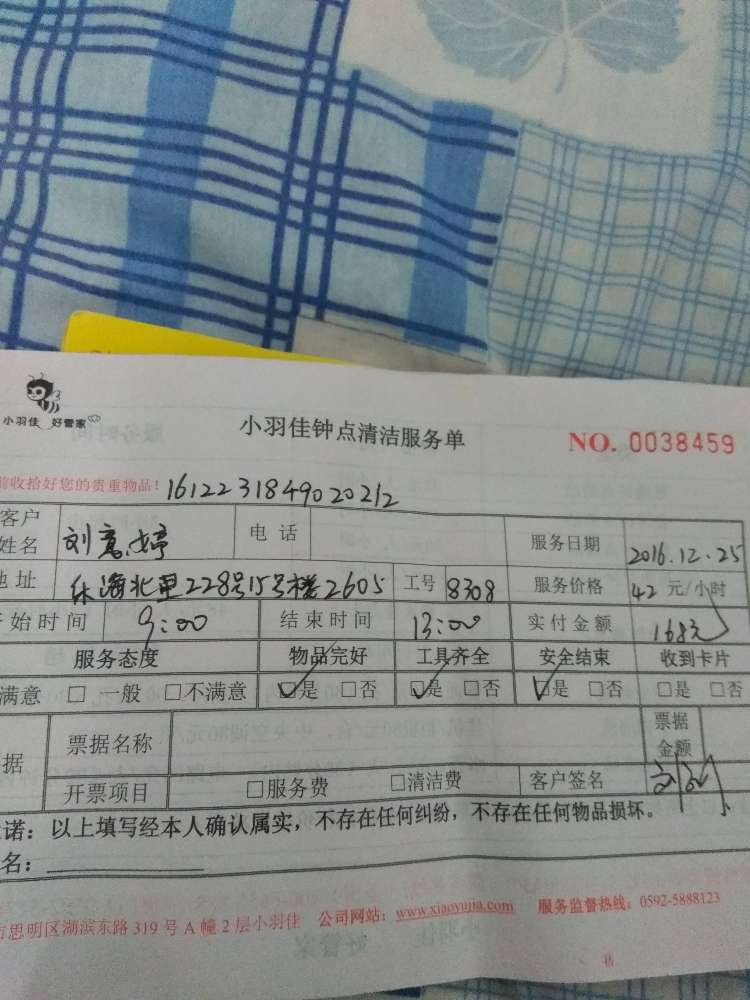 小羽佳 好管家
小羽佳钟点清洁服务单
NO. 0038459
前收拾好您的贵重物品! 161223184902021 2
客户姓名 刘 婷 电话 服务日期 2016.12.25
地址 海北里228号15号楼2605 工号 8308 服务价格 42 元/小时
开始时间 9:00 结束时间 13:00 实付金额 168元
服务态度 物品完好 工具齐全 安全结束 收到卡片
满意 □ 一般 □不满意 ☑是 □否 ☑是 □否 ☑是 □否 □是 □否
据 票据名称 票据金额
开票项目 □服务费 □清洁费 客户签名
诺：以上填写经本人确认属实，不存在任何纠纷，不存在任何物品损坏。
名：
市思明区湖滨东路 319 号 A 幢 2 层小羽佳 公司网站：www.xiaoyujia.com 服务监督热线：0592-5888123